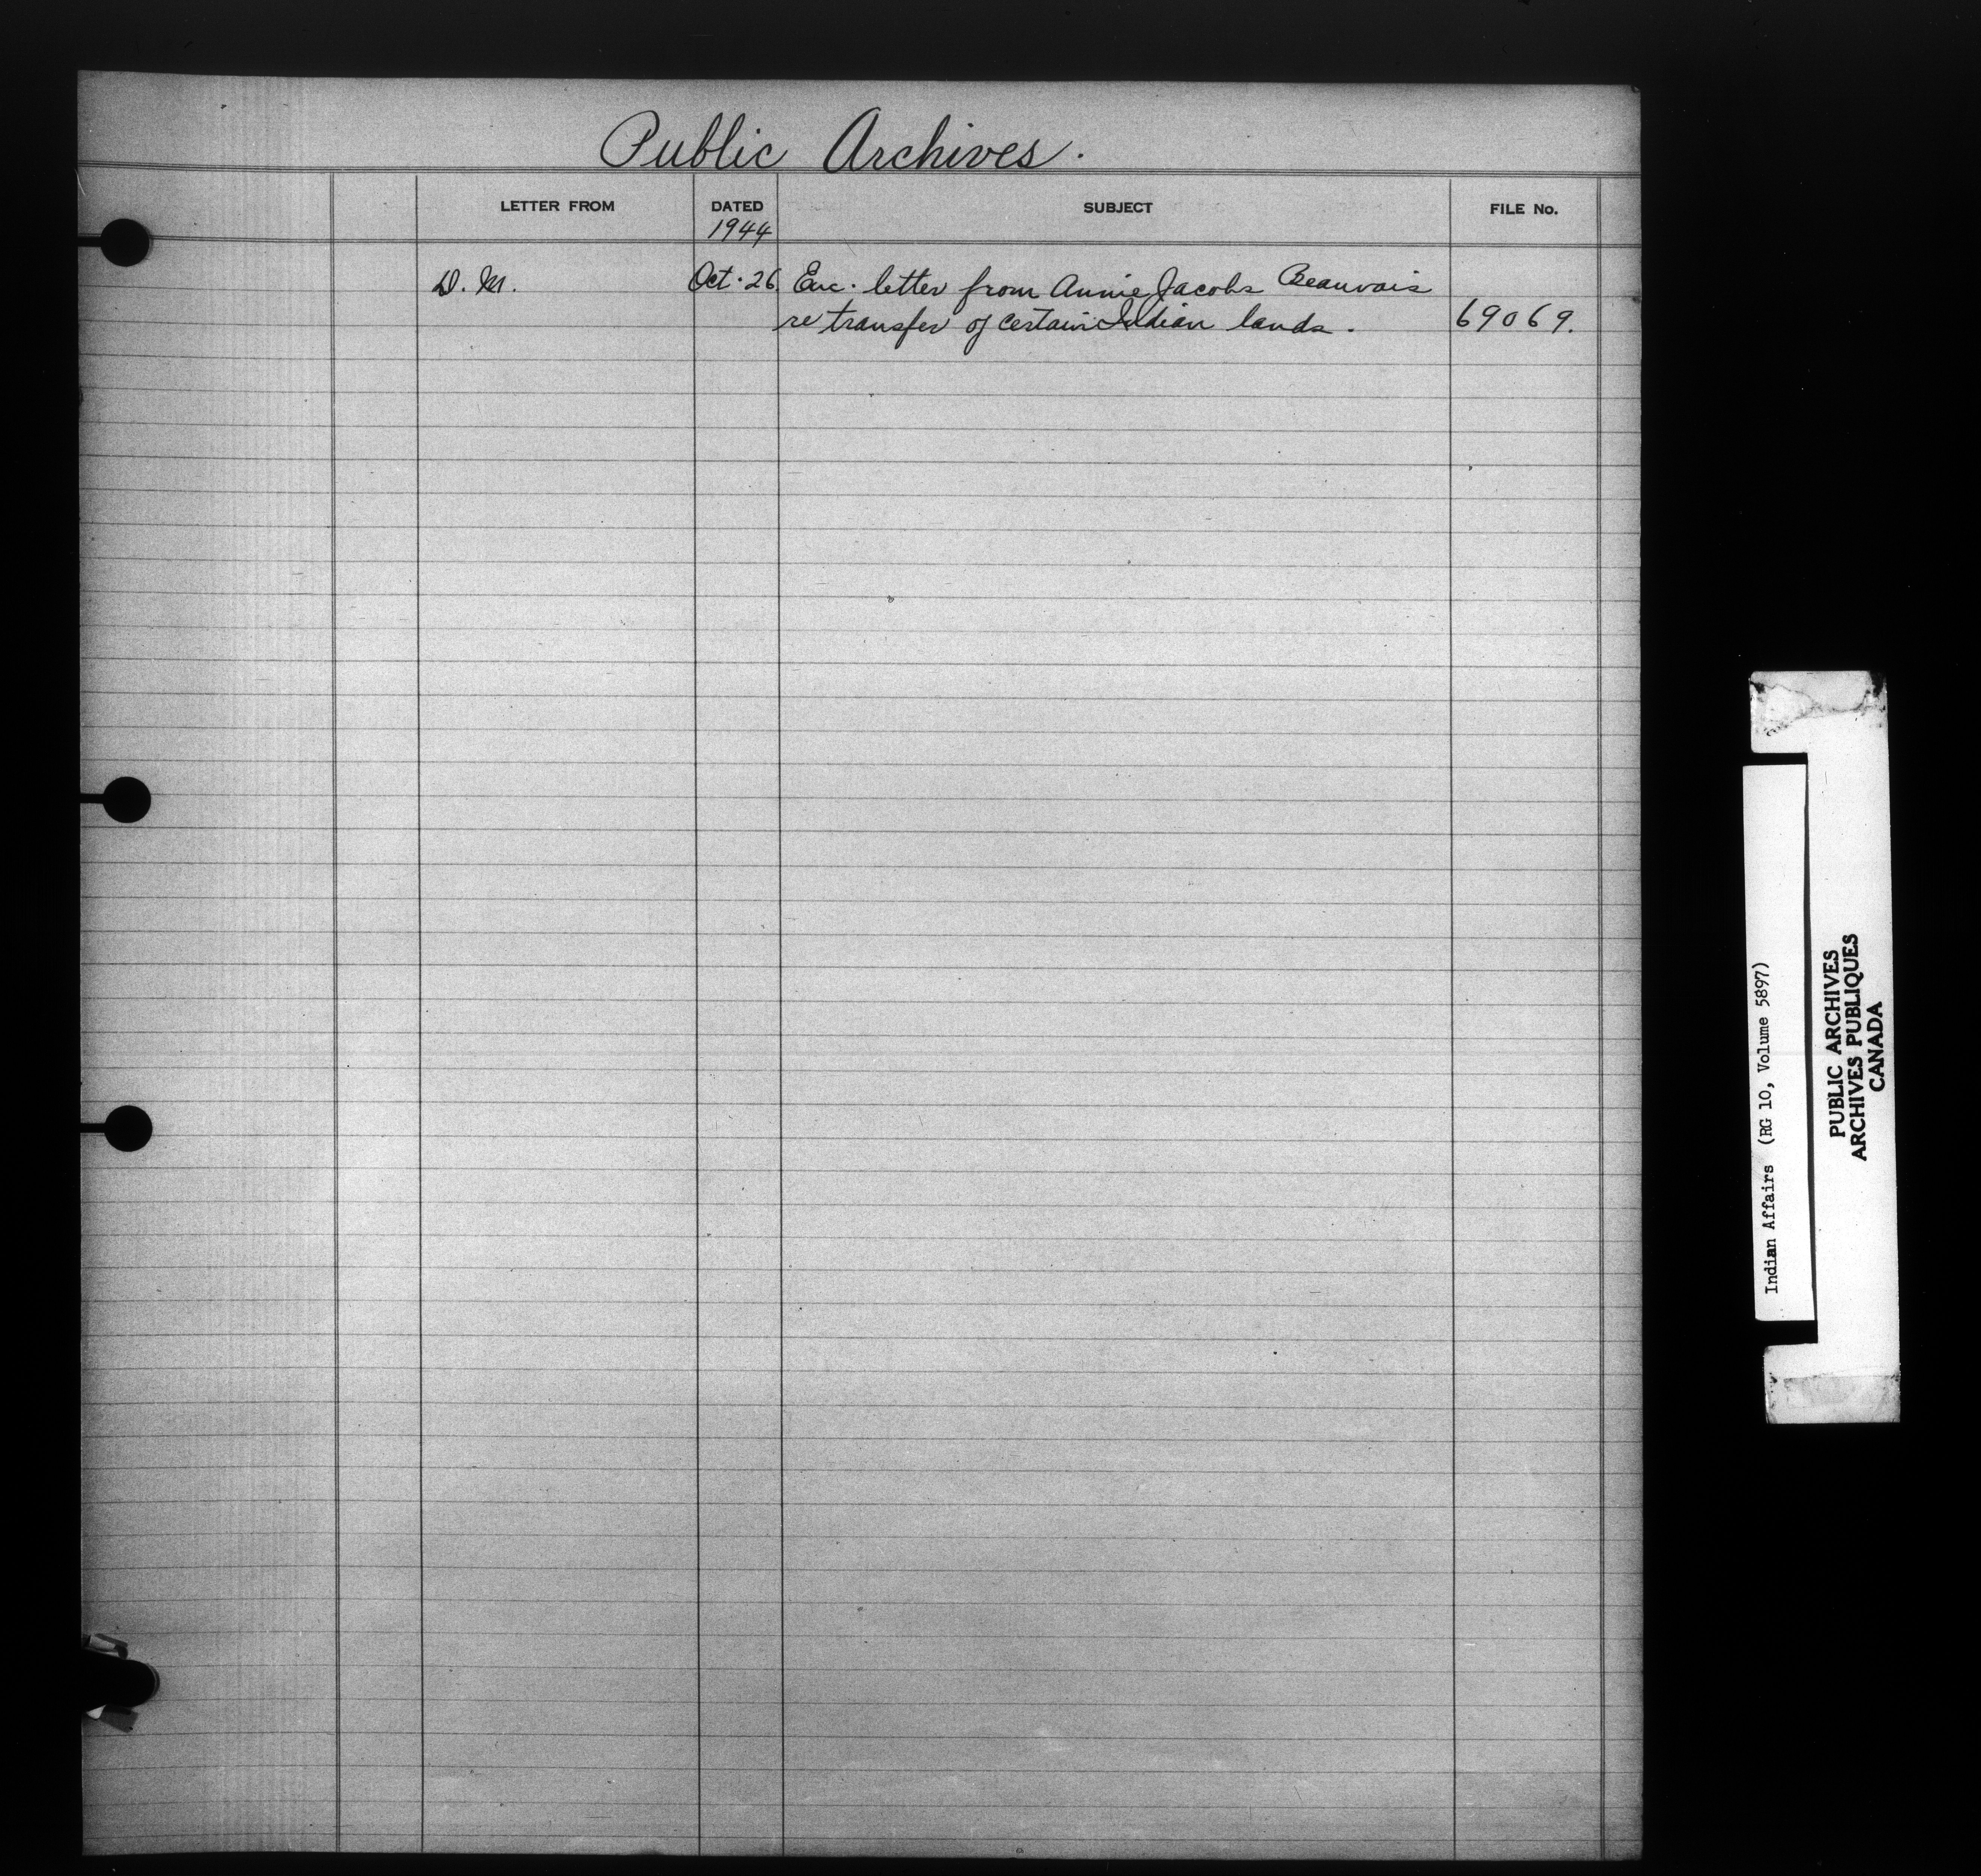 Public Archives.
LETTER FROM DATED SUBJECT FILE No.
1944
D. M. Oct. 26. Enc. letter from Annie Jacobs Beauvais
re transfer of certain Indian lands. 69069.
Indian Affairs (RG 10, Volume 5897)
PUBLIC ARCHIVES
ARCHIVES PUBLIQUES
CANADA